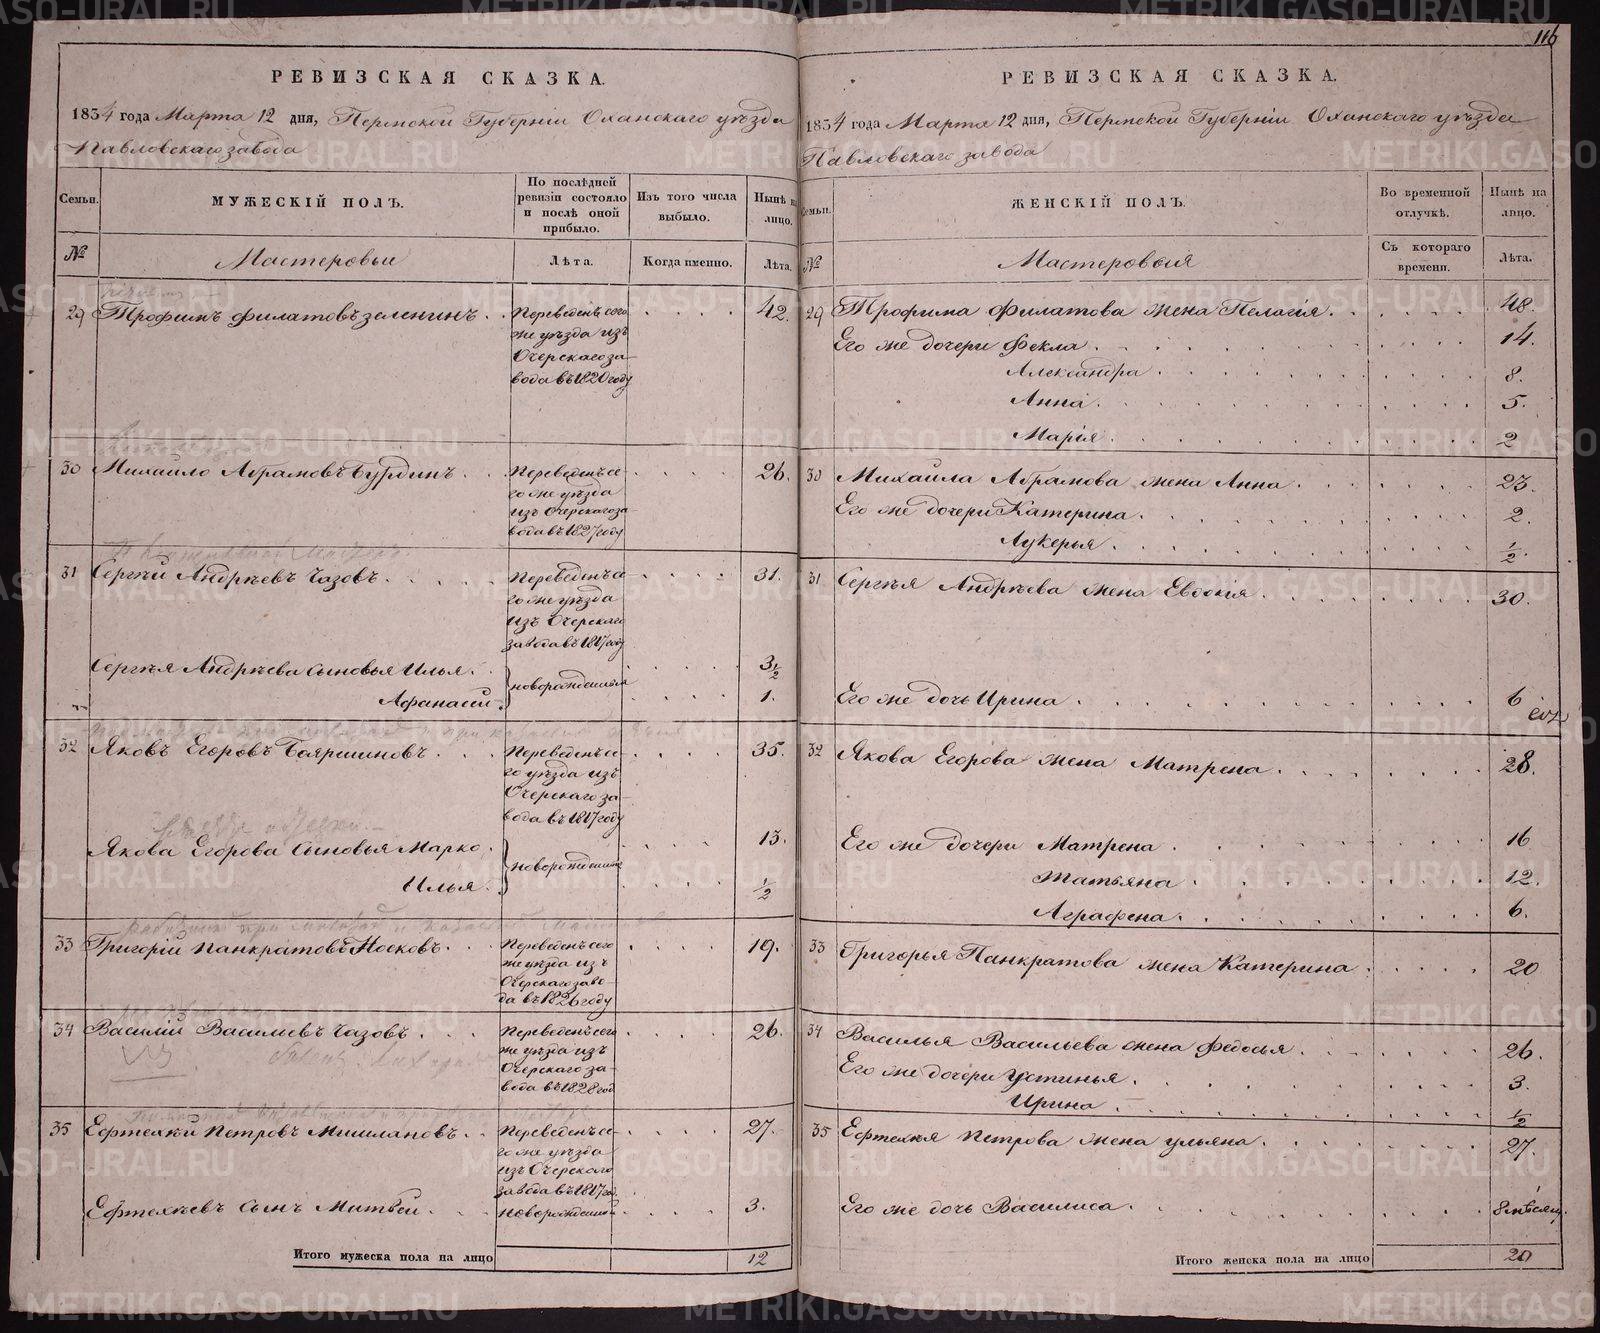 116
РЕВИЗСКАЯ СКАЗКА.
1834 года Марта 12 дня, Пермской Губерніи Оханскаго уѣзда
Павловскаго завода
Семьи.
МУЖЕСКІЙ ПОЛЪ.
По послѣдней ревизіи состояло и послѣ оной прибыло.
Изъ того числа выбыло.
Нынѣ на лицо.
№
Мастеровыи
Лѣта.
Когда именно.
Лѣта.
29 Трофимъ Филатовъ Зеленинъ. 42.
Переведенъ сего
же уѣзда изъ
Очерскаго за-
вода въ 1820 году
30 Михайло Абрамовъ Бурдинъ 26.
Переведенъ се-
го же уѣзда
изъ Очерскаго за-
вода въ 1827 году
31 Сергѣй Андрѣевъ Чазовъ. 31.
Переведенъ се-
го же уѣзда
изъ Очерскаго
завода въ 1817 году
Сергѣя Андрѣева сыновья Илья. 3 1/2
новорожденныя
Афанасій. 1.
32 Яковъ Егоровъ Бояршиновъ. 35.
Переведенъ се-
го уѣзда изъ
Очерскаго за-
вода въ 1817 году
Якова Егорова сыновья Марко. 13.
новорожденныя
Илья. 1/2
33 Григорій Панкратовъ Носковъ. 19.
Переведенъ сего
же уѣзда изъ
Очерскаго заво-
да въ 1826 году
34 Василій Васильевъ Чазовъ. 26.
Переведенъ сего
же уѣзда изъ
Очерскаго за-
вода въ 1828 год
35 Ефтехѣй Петровъ Мишлановъ. 27.
Переведенъ се-
го же уѣзда
изъ Очерскаго
завода въ 1817 год.
Ефтехѣевъ сынъ Матвѣй. новорожденный 3.
Итого мужеска пола на лицо 12
РЕВИЗСКАЯ СКАЗКА.
1834 года Марта 12 дня, Пермской Губерніи Оханскаго уѣзда
Павловскаго завода
Семьи.
ЖЕНСКІЙ ПОЛЪ.
Во временной отлучкѣ.
Нынѣ на лицо.
№
Мастеровыя
Съ котораго времени.
Лѣта.
29 Трофима Филатова жена Пелагія. 48.
Его же дочери Фекла. 14.
Александра. 8.
Анна. 5.
Марія. 2
30 Михайла Абрамова жена Анна. 23.
Его же дочери Катерина. 2.
Лукерья. 1/2
31 Сергѣя Андрѣева жена Евдокія. 30.
Его же дочь Ирина. 6
32 Якова Егорова жена Матрена. 28.
Его же дочери Матрена. 16
Татьяна. 12.
Аграфена. 6.
33 Григорья Панкратова жена Катерина. 20
34 Василья Васильева жена Федосья. 26.
Его же дочери Устинья. 3.
Ирина. 1/2
35 Ефтехѣя Петрова жена Ульяна. 27.
Его же дочь Василиса. 8 мѣсяц.
Итого женска пола на лицо 20
METRIKI.GASO-URAL.RU